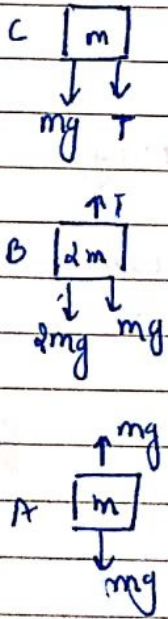 C m
mg T
T
B 2m
2mg mg
mg
A m
mg